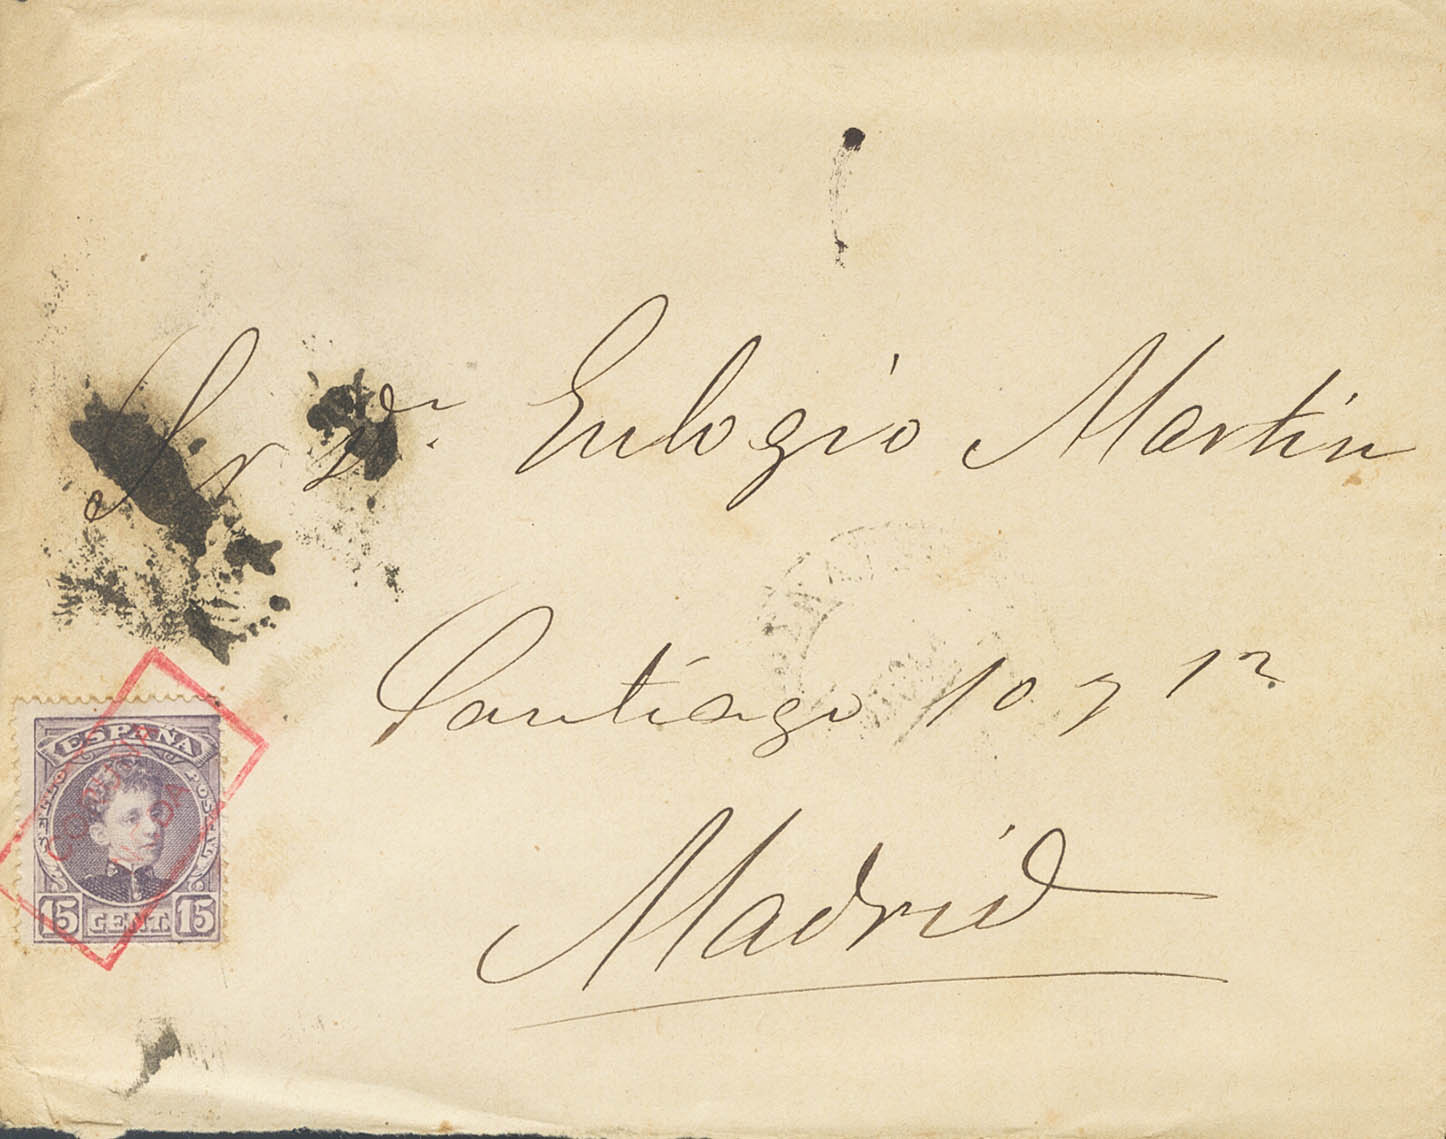 Sr Dn. Eulogio Martin
Santiago 10 y 12
Madrid
ESPAÑA
SELLO POSTAL
15 CENT. 15